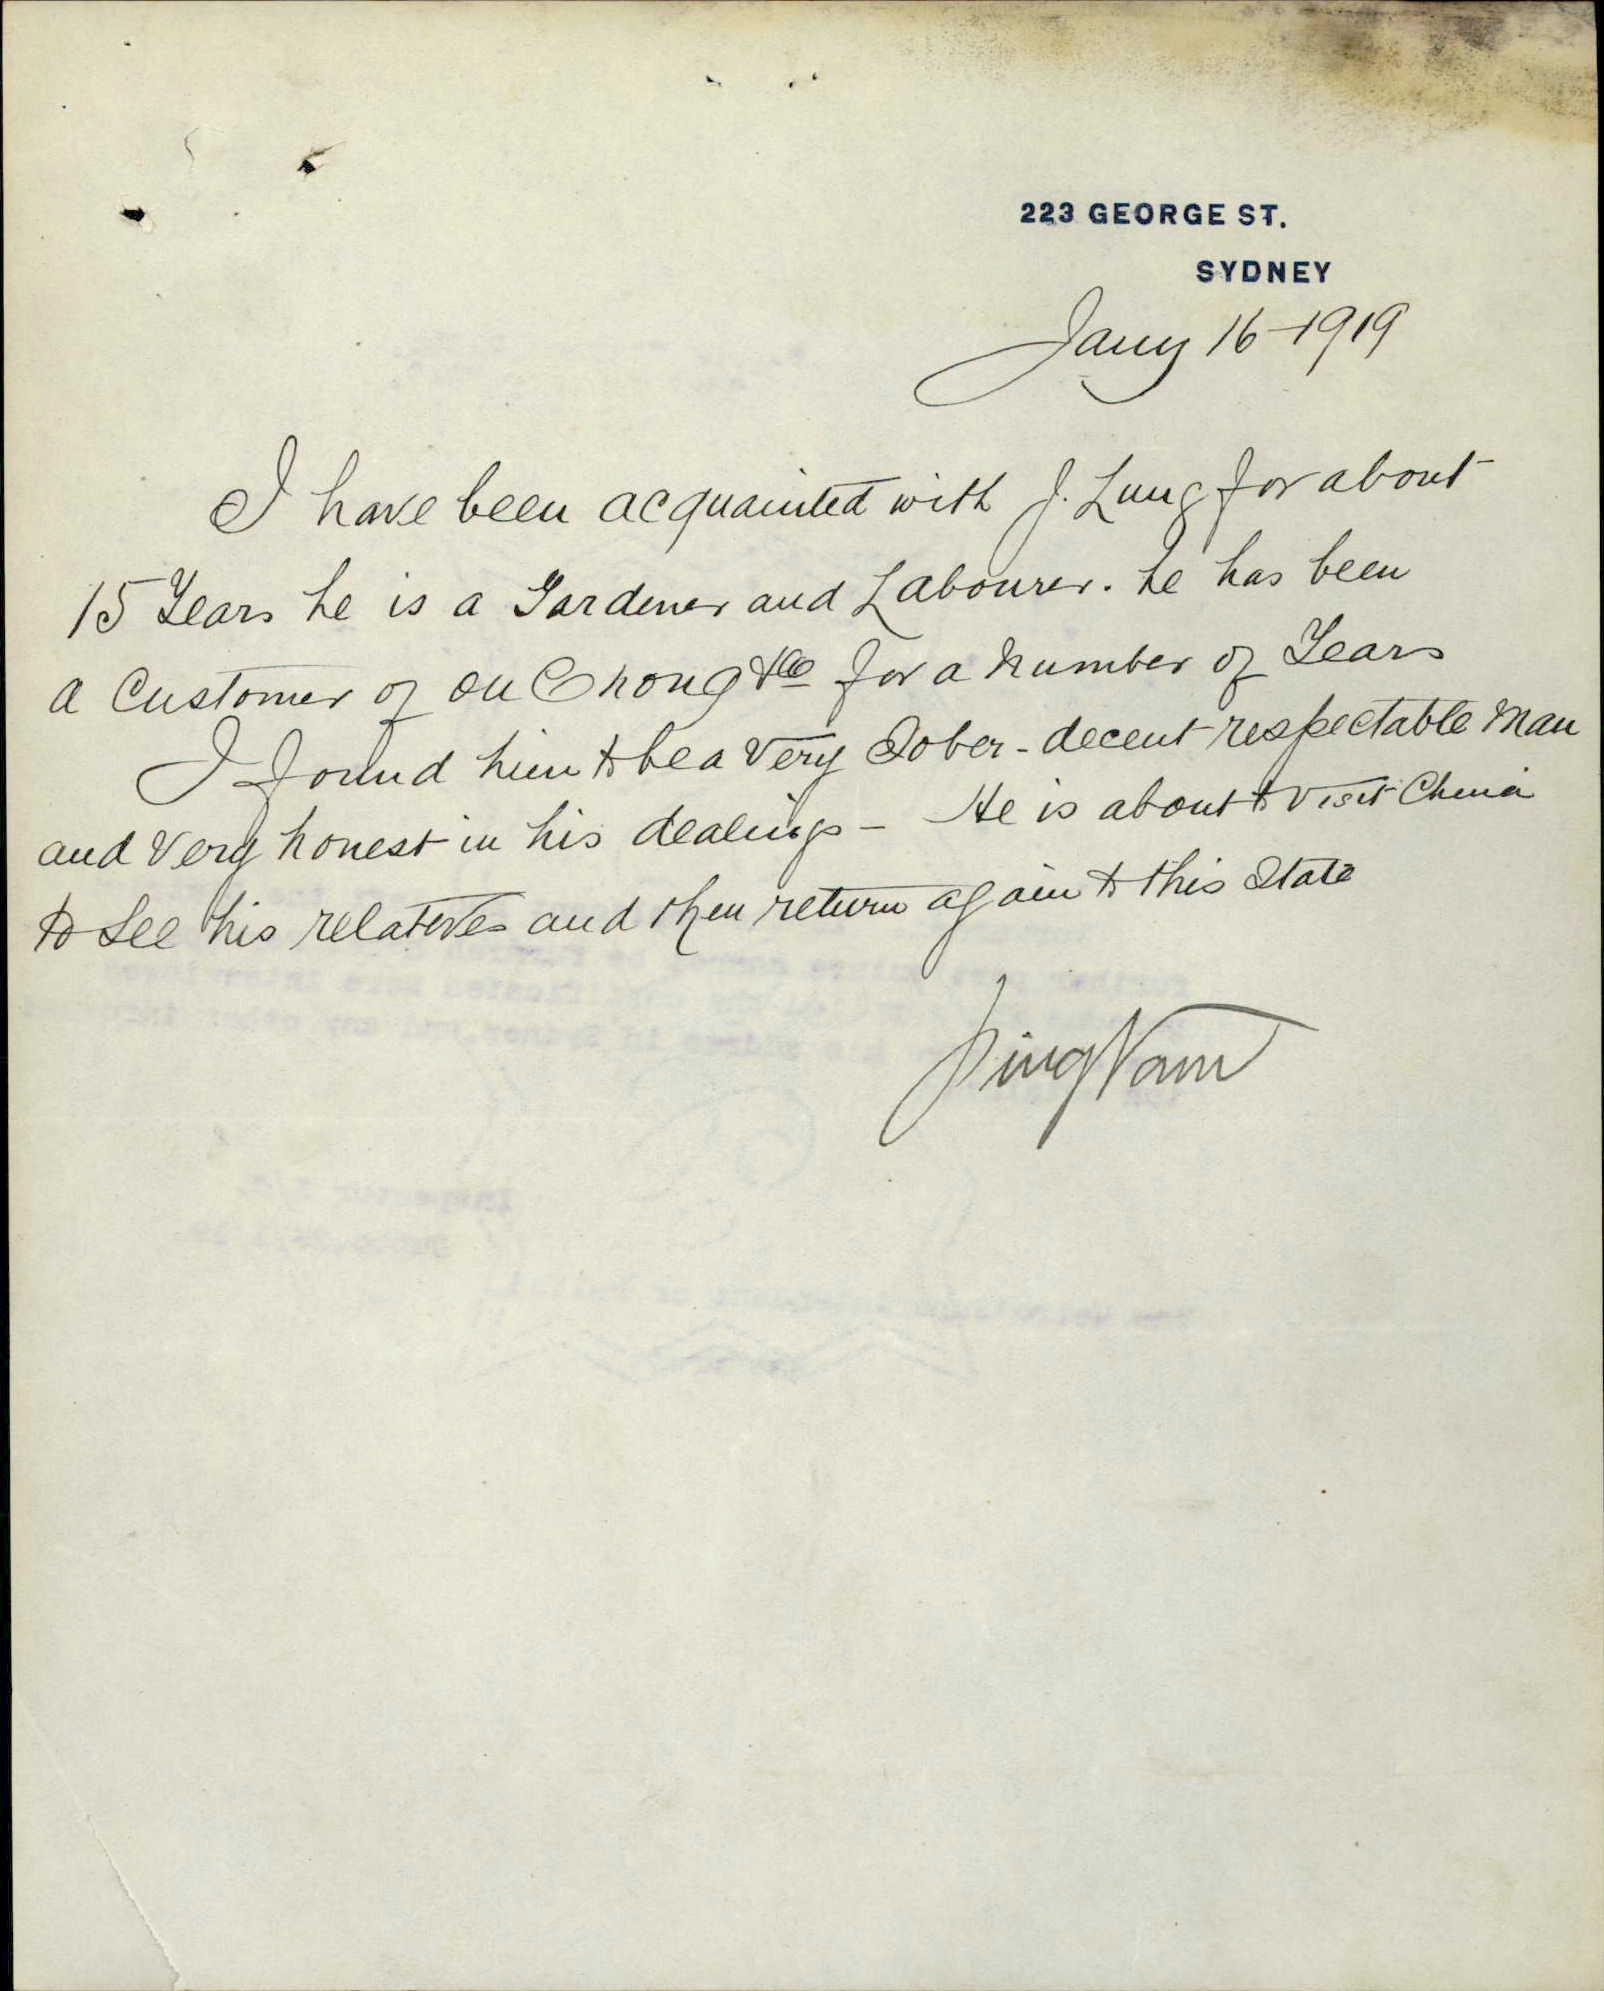 223 GEORGE ST.
SYDNEY
Jany 16-1919
I have been acquainted with J. Lung for about
15 Years he is a Gardener and Labourer. he has been
a Customer of On Chong & Co for a Number of Years
I found him to be a Very Sober - decent respectable Man
and Very honest in his dealings - He is about to Visit China
to See his relatives and then return again to this State